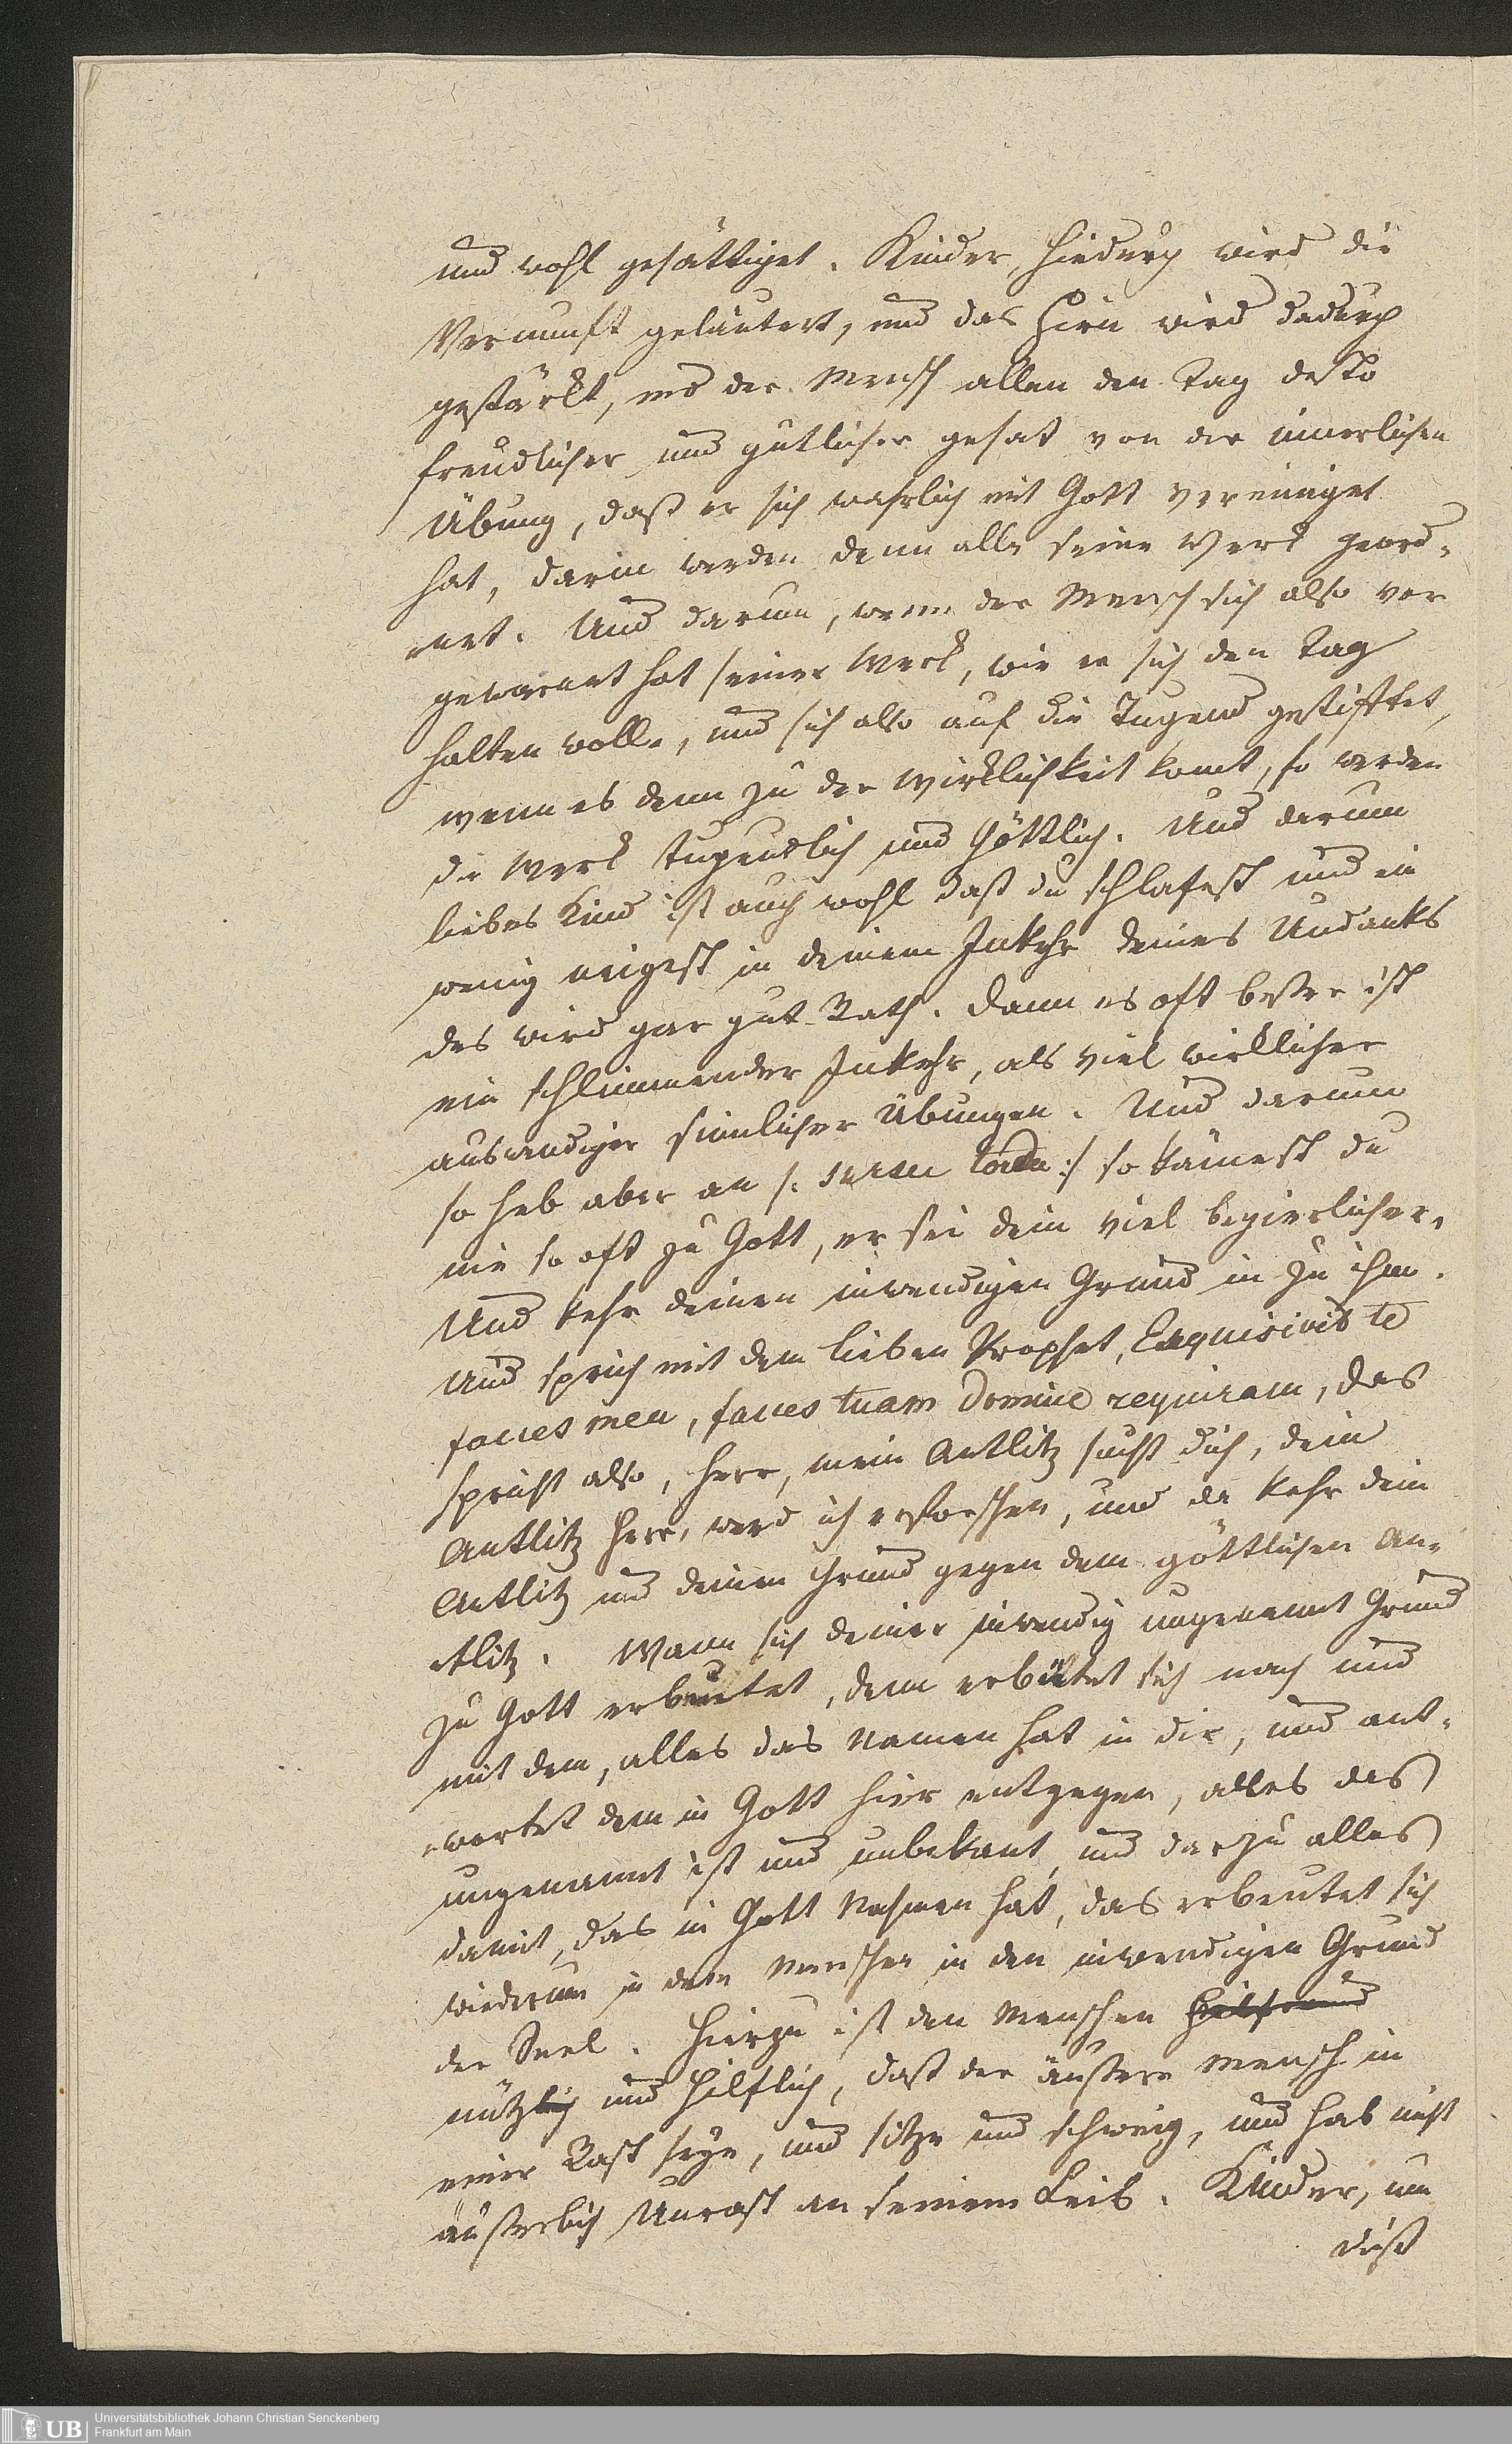 und wohl gesättiget. Kinder, hiedurch wird die
Vernunft geläutert, und das Hirn wird dadurch
gestärkt, und der Mensch allen den Tag desto
freudlicher und gütlicher gehat von der innerlichen
Übung, daß er sich wahrlich mit Gott vereiniget
hat, darin werden denn alle seine Werk geord-
net. Und darum, wenn der Mensch sich also vor
gewarnet hat seiner Werk, wie er sich den Tag
halten wolle, und sich also auf die Tugend gestifftet,
wenn es denn zu der Wirklichkeit komt, so werden
die Werk tugendlich und Göttlich. Und darum
liebes Kind ist auch wohl daß du schlafest und ein
wenig neigest in deinem Inkehr deines Undanks
des wird gar gut Rath. Dann es oft besser ist
ein schlummender Inkehr, als viel wirklicher
auswendiger sinnlicher Übungen. Und darum
so heb aber an /: sursum corda :/ so kämest du
nie so oft zu Gott, er sei dein viel begierlicher.
Und kehr deinen inwendigen Grund in zu ihm.
Und sprich mit dem lieben Prophet, Exquisivit te
facies mea, facies tuam Domine requiram, das
spricht also, Herr, mein Antlitz sucht dich, dein
Antlitz Herr, werd ich erforschen, und da kehr dein
Antlitz und deinen Grund gegen dem göttlichen An-
tlitz. Wann sich deiner inwendig ungenannt Grund
zu Gott erbeutet, dem erbütet sich nach und
mit dem, alles das Namen hat in dir, und ant-
wortet dem in Gott hier entgegen, alles das
ungenannt ist und unbekant, und darzu alles
damit, das in Gott Nahmen hat, das erbeutet sich
wiederum in dem Menschen in den inwendigen Grund
der Seel. Hierzu ist den Menschen hilf und
nützlich und hilflich, daß der äussere Mensch in
einer Rast seye, und sitze und schweig, und hab nicht
äusserlich Unrast an seinem Leib. Kinder, um
diß
Universitätsbibliothek Johann Christian Senckenberg
Frankfurt am Main
UB